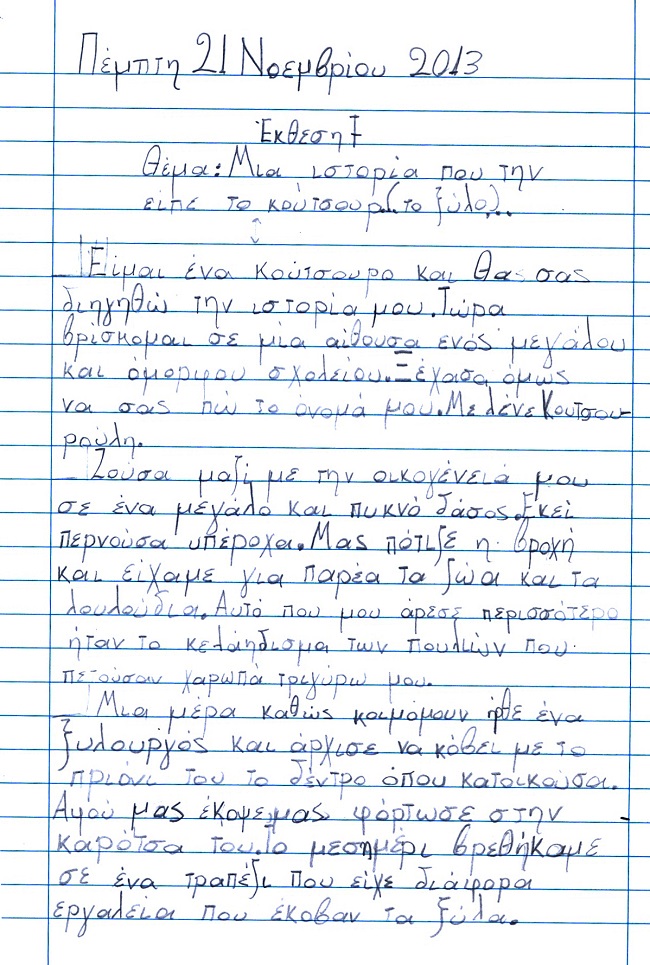 Πέμπτη 21 Νοεμβρίου 2013
Έκθεση
Θέμα: Μια ιστορία που την
είπε το κούτσουρο (το ξύλο)..
Είμαι ένα κούτσουρο και θα σας
διηγηθώ την ιστορία μου. Τώρα
βρίσκομαι σε μία αίθουσα ενός μεγάλου
και όμορφου σχολείου. Ξέχασα όμως
να σας πώ το όνομά μου. Με λένε Κουτσου-
ρούλη.
Ζούσα μαζί με την οικογένειά μου
σε ένα μεγάλο και πυκνό δάσος. Εκεί
περνούσα υπέροχα. Μας πότιζε η βροχή
και είχαμε για παρέα τα ζώα και τα
λουλούδια. Αυτό που μου άρεσε περισσότερο
ήταν το κελάηδισμα των πουλιών που
πετούσαν χαρωπά τριγύρω μου.
Μια μέρα καθώς κοιμόμουν ήρθε ένα
ξυλουργός και άρχισε να κόβει με το
πριόνι του το δέντρο όπου κατοικούσα.
Αφού μας έκοψε, μας φόρτωσε στην
καρότσα του. Το μεσημέρι βρεθήκαμε
σε ένα τραπέζι που είχε διάφορα
εργαλεία που έκοβαν τα ξύλα.